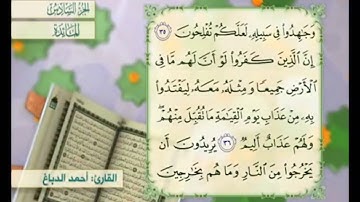 الجزء السادس
المائدة
وَجَٰهِدُوا۟ فِى سَبِيلِهِۦ لَعَلَّكُمْ تُفْلِحُونَ ٣٥
إِنَّ ٱلَّذِينَ كَفَرُوا۟ لَوْ أَنَّ لَهُم مَّا فِى
ٱلْأَرْضِ جَمِيعًا وَمِثْلَهُۥ مَعَهُۥ لِيَفْتَدُوا۟
بِهِۦ مِنْ عَذَابِ يَوْمِ ٱلْقِيَٰمَةِ مَا تُقُبِّلَ مِنْهُمْ ۖ
وَلَهُمْ عَذَابٌ أَلِيمٌ ٣٦ يُرِيدُونَ أَن
يَخْرُجُوا۟ مِنَ ٱلنَّارِ وَمَا هُم بِخَٰرِجِينَ
القارئ: أحمد الدباغ